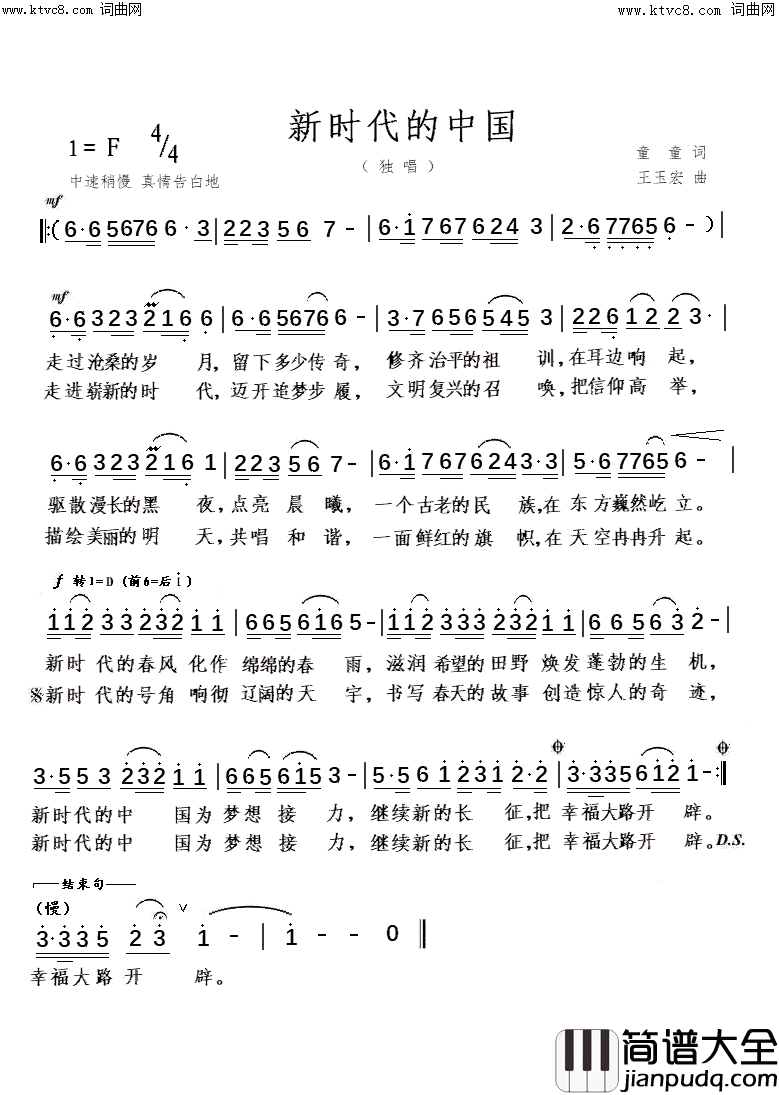 www.ktvc8.com 词曲网 www.ktvc8.com 词曲网
新时代的中国
1= F 4/4
（独唱）
童童 词
中速稍慢 真情告白地
王玉宏 曲
mf
‖:(6·6 5676 6·3|223 56 7-|6·1 767 624 3|2·6 7765 6-)|
mf
6·6 323 216 6|6·6 5676 6-|3·7 656 545 3|226 12 23·|
走过沧桑的岁 月,留下多少传奇, 修齐治平的祖 训,在耳边响起,
走进崭新的时 代,迈开追梦步履, 文明复兴的召 唤,把信仰高举,
6·6 323 216 1|223 56 7-|6·1 767 624 3·3|5·6 7765 6-|
驱散漫长的黑 夜,点亮晨曦, 一个古老的民 族,在东方巍然屹立。
描绘美丽的明 天,共唱和谐, 一面鲜红的旗 帜,在天空冉冉升起。
f 转1=D (前6=后i)
112 33 232 11|665 616 5-|112 333 232 11|665 63 2-|
新时代的春风化作绵绵的春 雨,滋润希望的田野焕发蓬勃的生机,
※新时代的号角响彻辽阔的天 宇,书写春天的故事创造惊人的奇迹,
3·5 53 232 11|665 615 3-|5·5 61 231 2·2|3·335 612 1-:‖
新时代的中 国为梦想接 力,继续新的长 征,把幸福大路开 辟。
新时代的中 国为梦想接 力,继续新的长 征,把幸福大路开 辟。D.S.
结束句
(慢)
3·335 23 ∨ 1-|1--0‖
幸福大路开 辟。
简谱大全
jianpudq.com